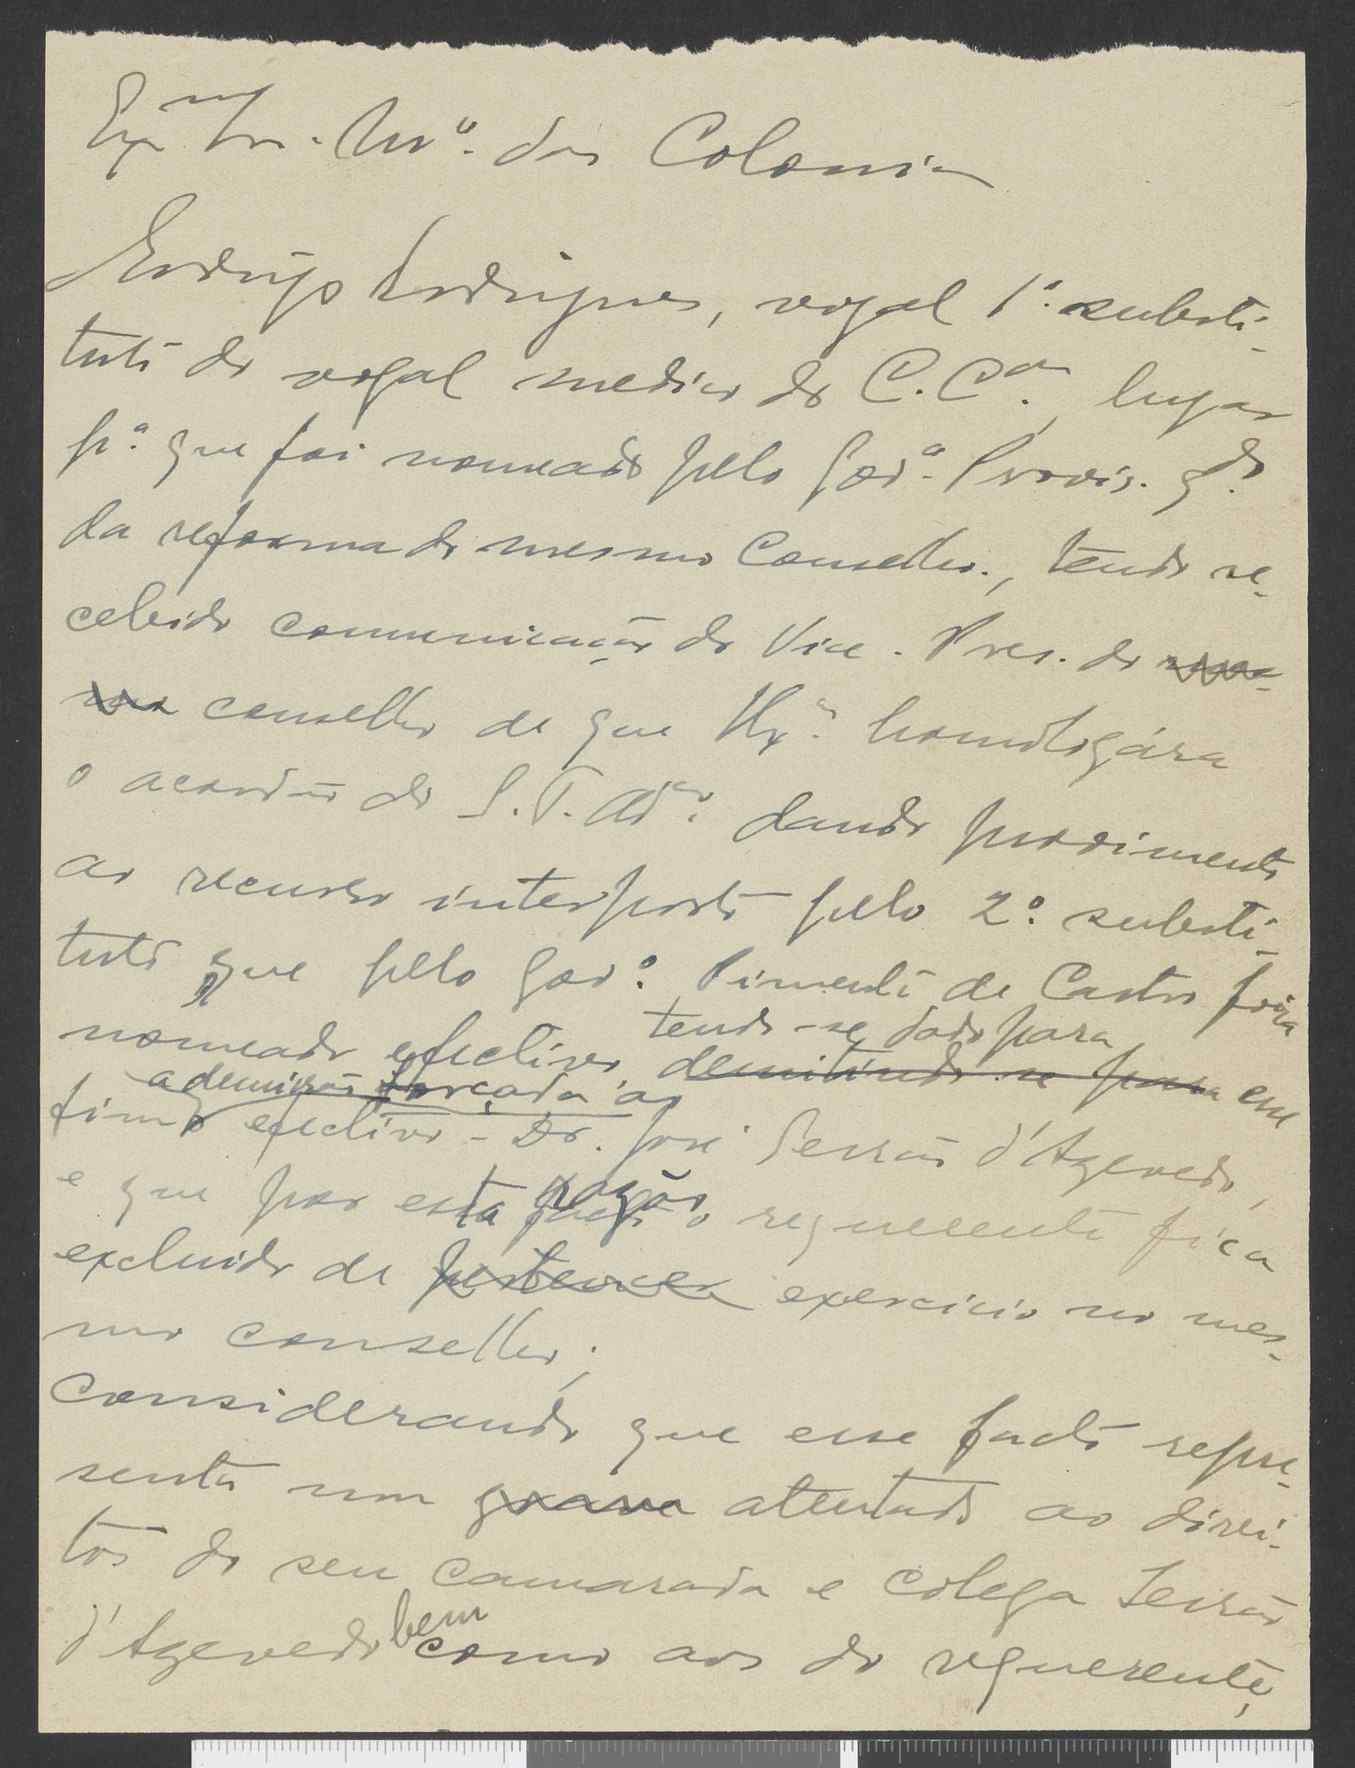 Exmº Sr. Mº. das Colonias
Rodrigo Rodrigues, vogal 1º. substi-
tuto do vogal medico do C. Cal., lugar
pª. que foi nomeado pelo Govº. Provis. qdo.
da reforma do mesmo Conselho., tendo re-
cebido comunicação do Vice-Pres. do mes-
mo conselho de que V. Exª. homologára
o acordão do S. T. Adº. dando provimento
ao recurso interposto pelo 2º. substi-
tuto que pelo Govº. Pimenta de Castro fôra
tendo-se dado para
nomeado efectivo, demitindo-se para esse
a demissão forçada ao
fim o efectivo - Dr. José Serrão d'Azevedo,
razão
e que por esta facto o requerente fica
excluido de pertencer exercicio no mes-
mo conselho;
Considerando que esse facto repre-
senta um grave atentado ao direi-
tos do seu camarada e colega Serrão
bem
d'Azevedo como aos do requerente,